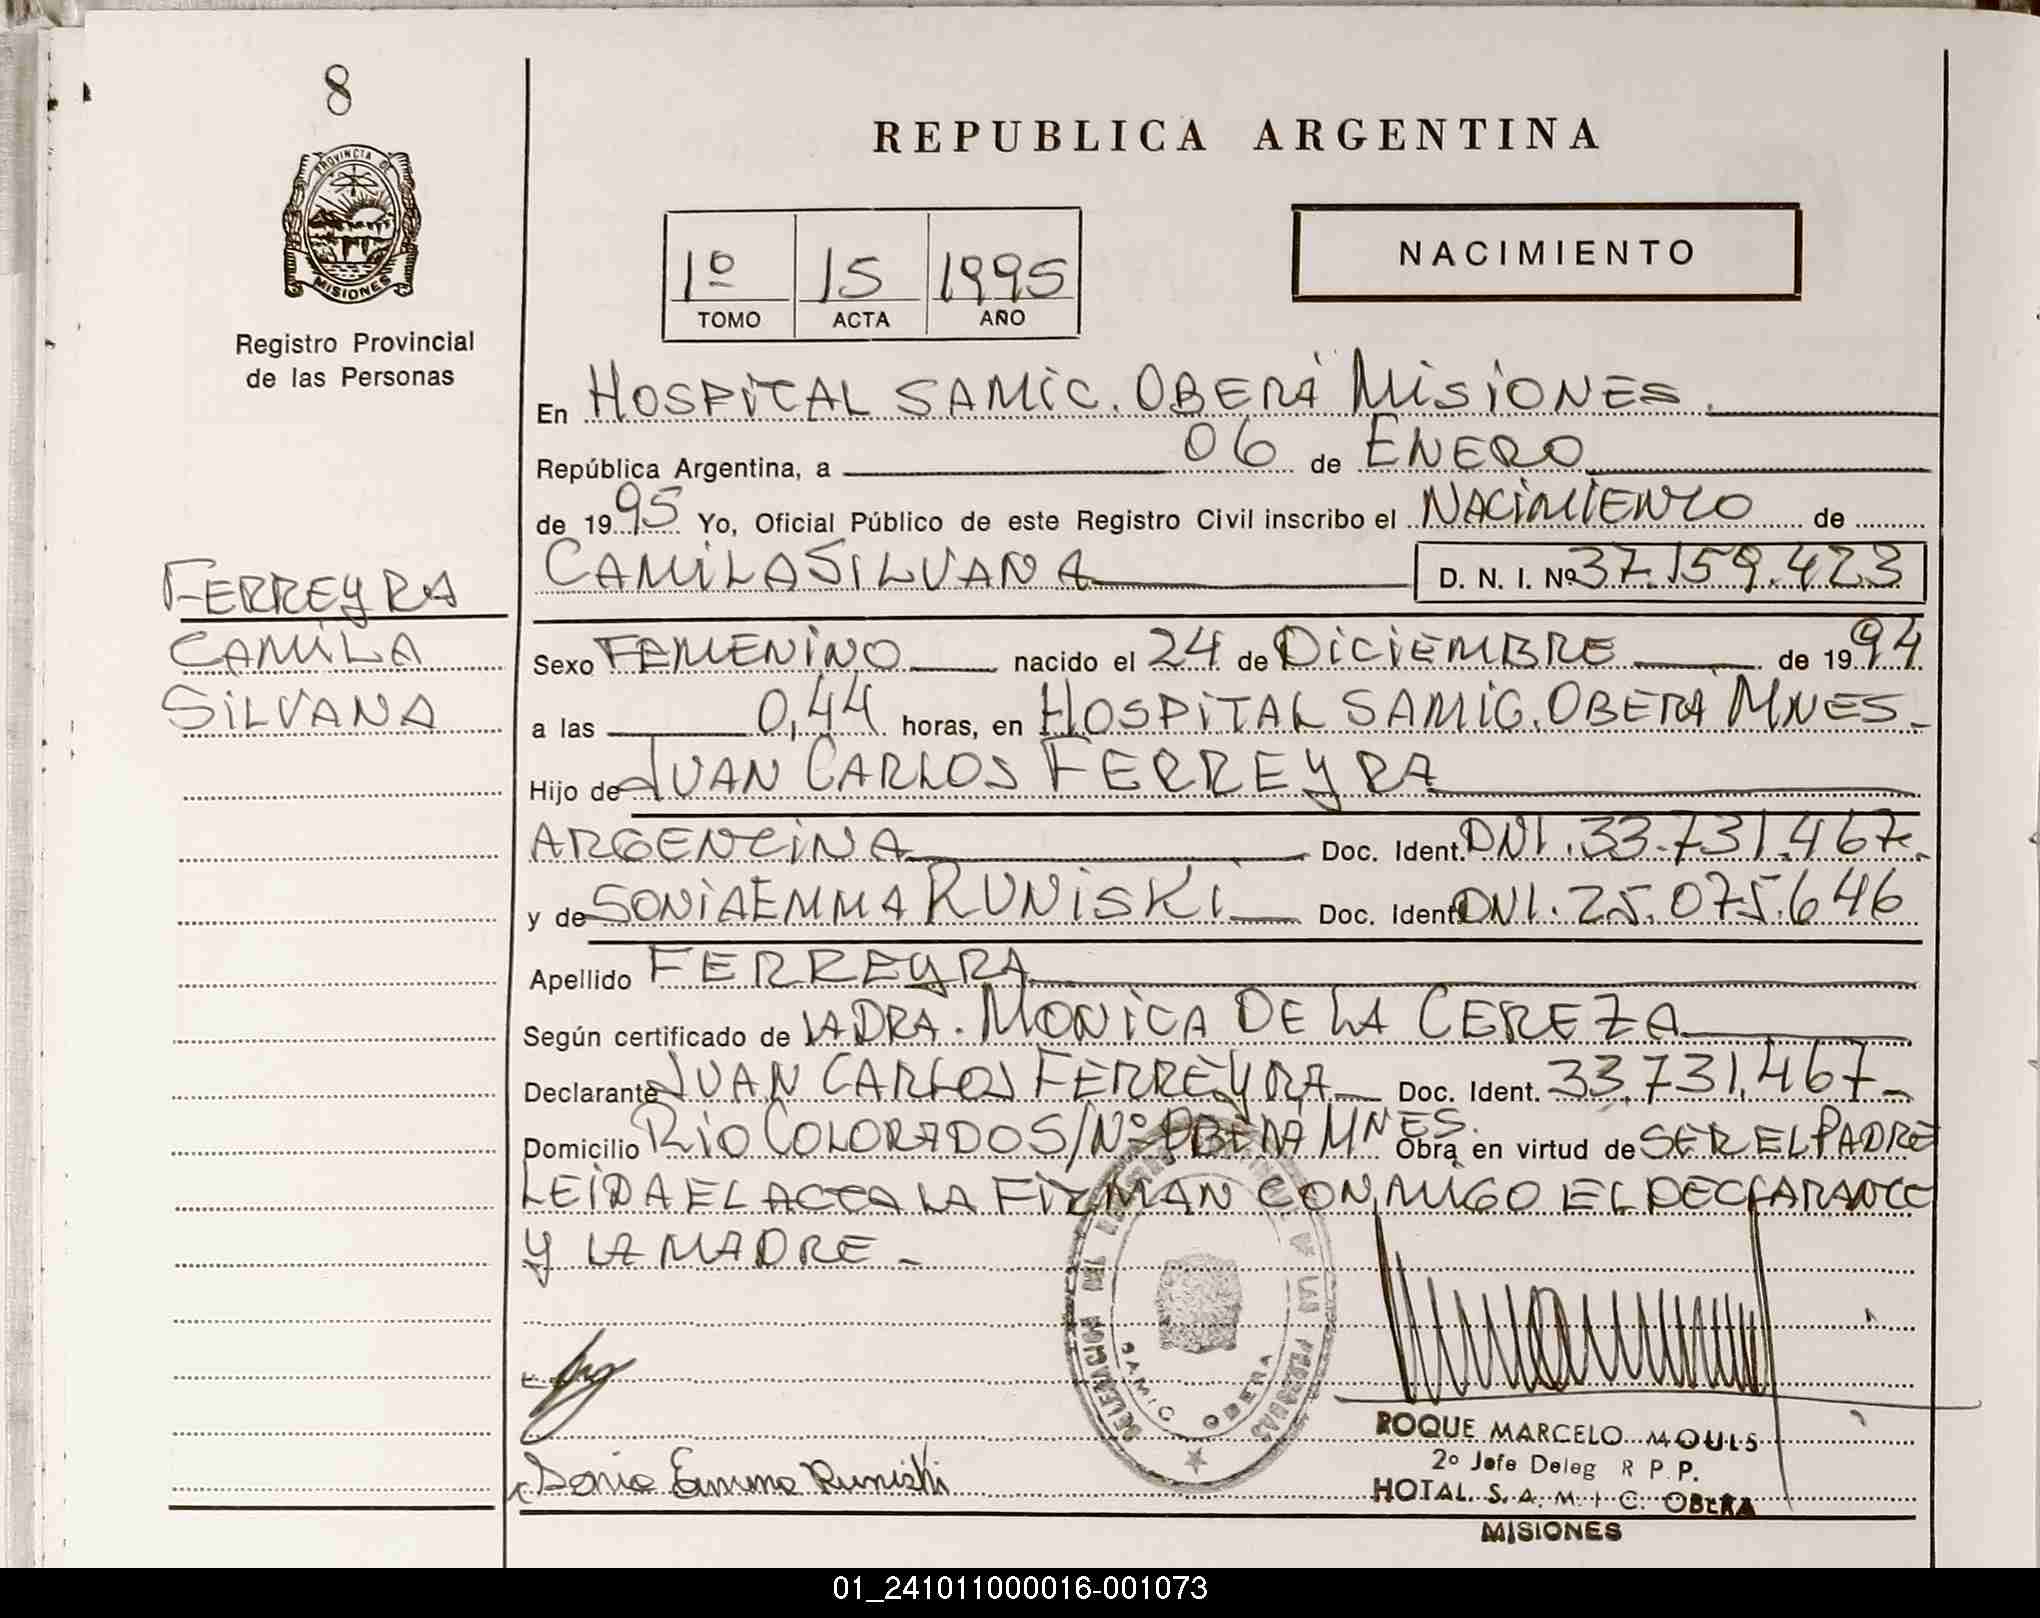 8
PROVINCIA DE
MISIONES
Registro Provincial
de las Personas
REPUBLICA ARGENTINA
1º 15 1995
TOMO ACTA AÑO
NACIMIENTO
En HOSPITAL SAMIC. OBERÁ MISIONES.
República Argentina, a 06 de ENERO
de 1995 Yo, Oficial Público de este Registro Civil inscribo el NACIMIENTO de
CAMILA SILVANA D. N. I. Nº 37.159.423
FERREYRA
CAMILA
SILVANA
Sexo FEMENINO nacido el 24 de DICIEMBRE de 1994
a las 0,44 horas, en HOSPITAL SAMIC. OBERÁ MNES.
Hijo de JUAN CARLOS FERREYRA
ARGENTINA Doc. Ident. DNI. 33.731.467.
y de SONIA EMMA RUNISKI Doc. Ident. DNI. 25.075.646
Apellido FERREYRA
Según certificado de LA DRA. MONICA DE LA CEREZA
Declarante JUAN CARLOS FERREYRA Doc. Ident. 33.731.467
Domicilio RIO COLORADO S/Nº OBERÁ MNES. Obra en virtud de SER EL PADRE
LEIDA EL ACTA LA FIRMAN CONMIGO EL DECLARANTE
Y LA MADRE.
SAMIC OBERA
Sonia Emma Runiski
ROQUE MARCELO MOULS
2º Jefe Deleg R P.P.
HOTAL. S. A. M. I C. OBERA
MISIONES
01_241011000016-001073